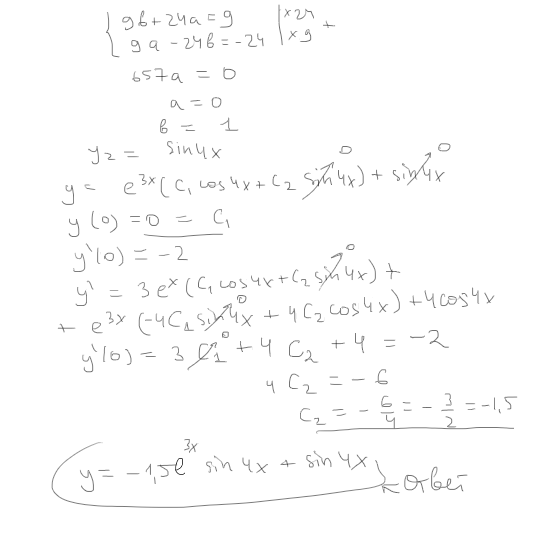 9b + 24a = 9 | x 24
9a - 24b = -24 | x 9 +
657a = 0
a = 0
b = 1
y2 = sin4x
y = e^3x (C1 cos4x + C2 sin4x) + sin4x
0 0
y(0) = 0 = C1
y'(0) = -2
y' = 3e^x (C1 cos4x + C2 sin4x) +
0
+ e^3x (-4C1 sin4x + 4C2 cos4x) + 4cos4x
0
y'(0) = 3 C1 + 4 C2 + 4 = -2
0
4 C2 = -6
C2 = -6/4 = -3/2 = -1,5
y = -1,5e^3x sin4x + sin4x ← Ответ